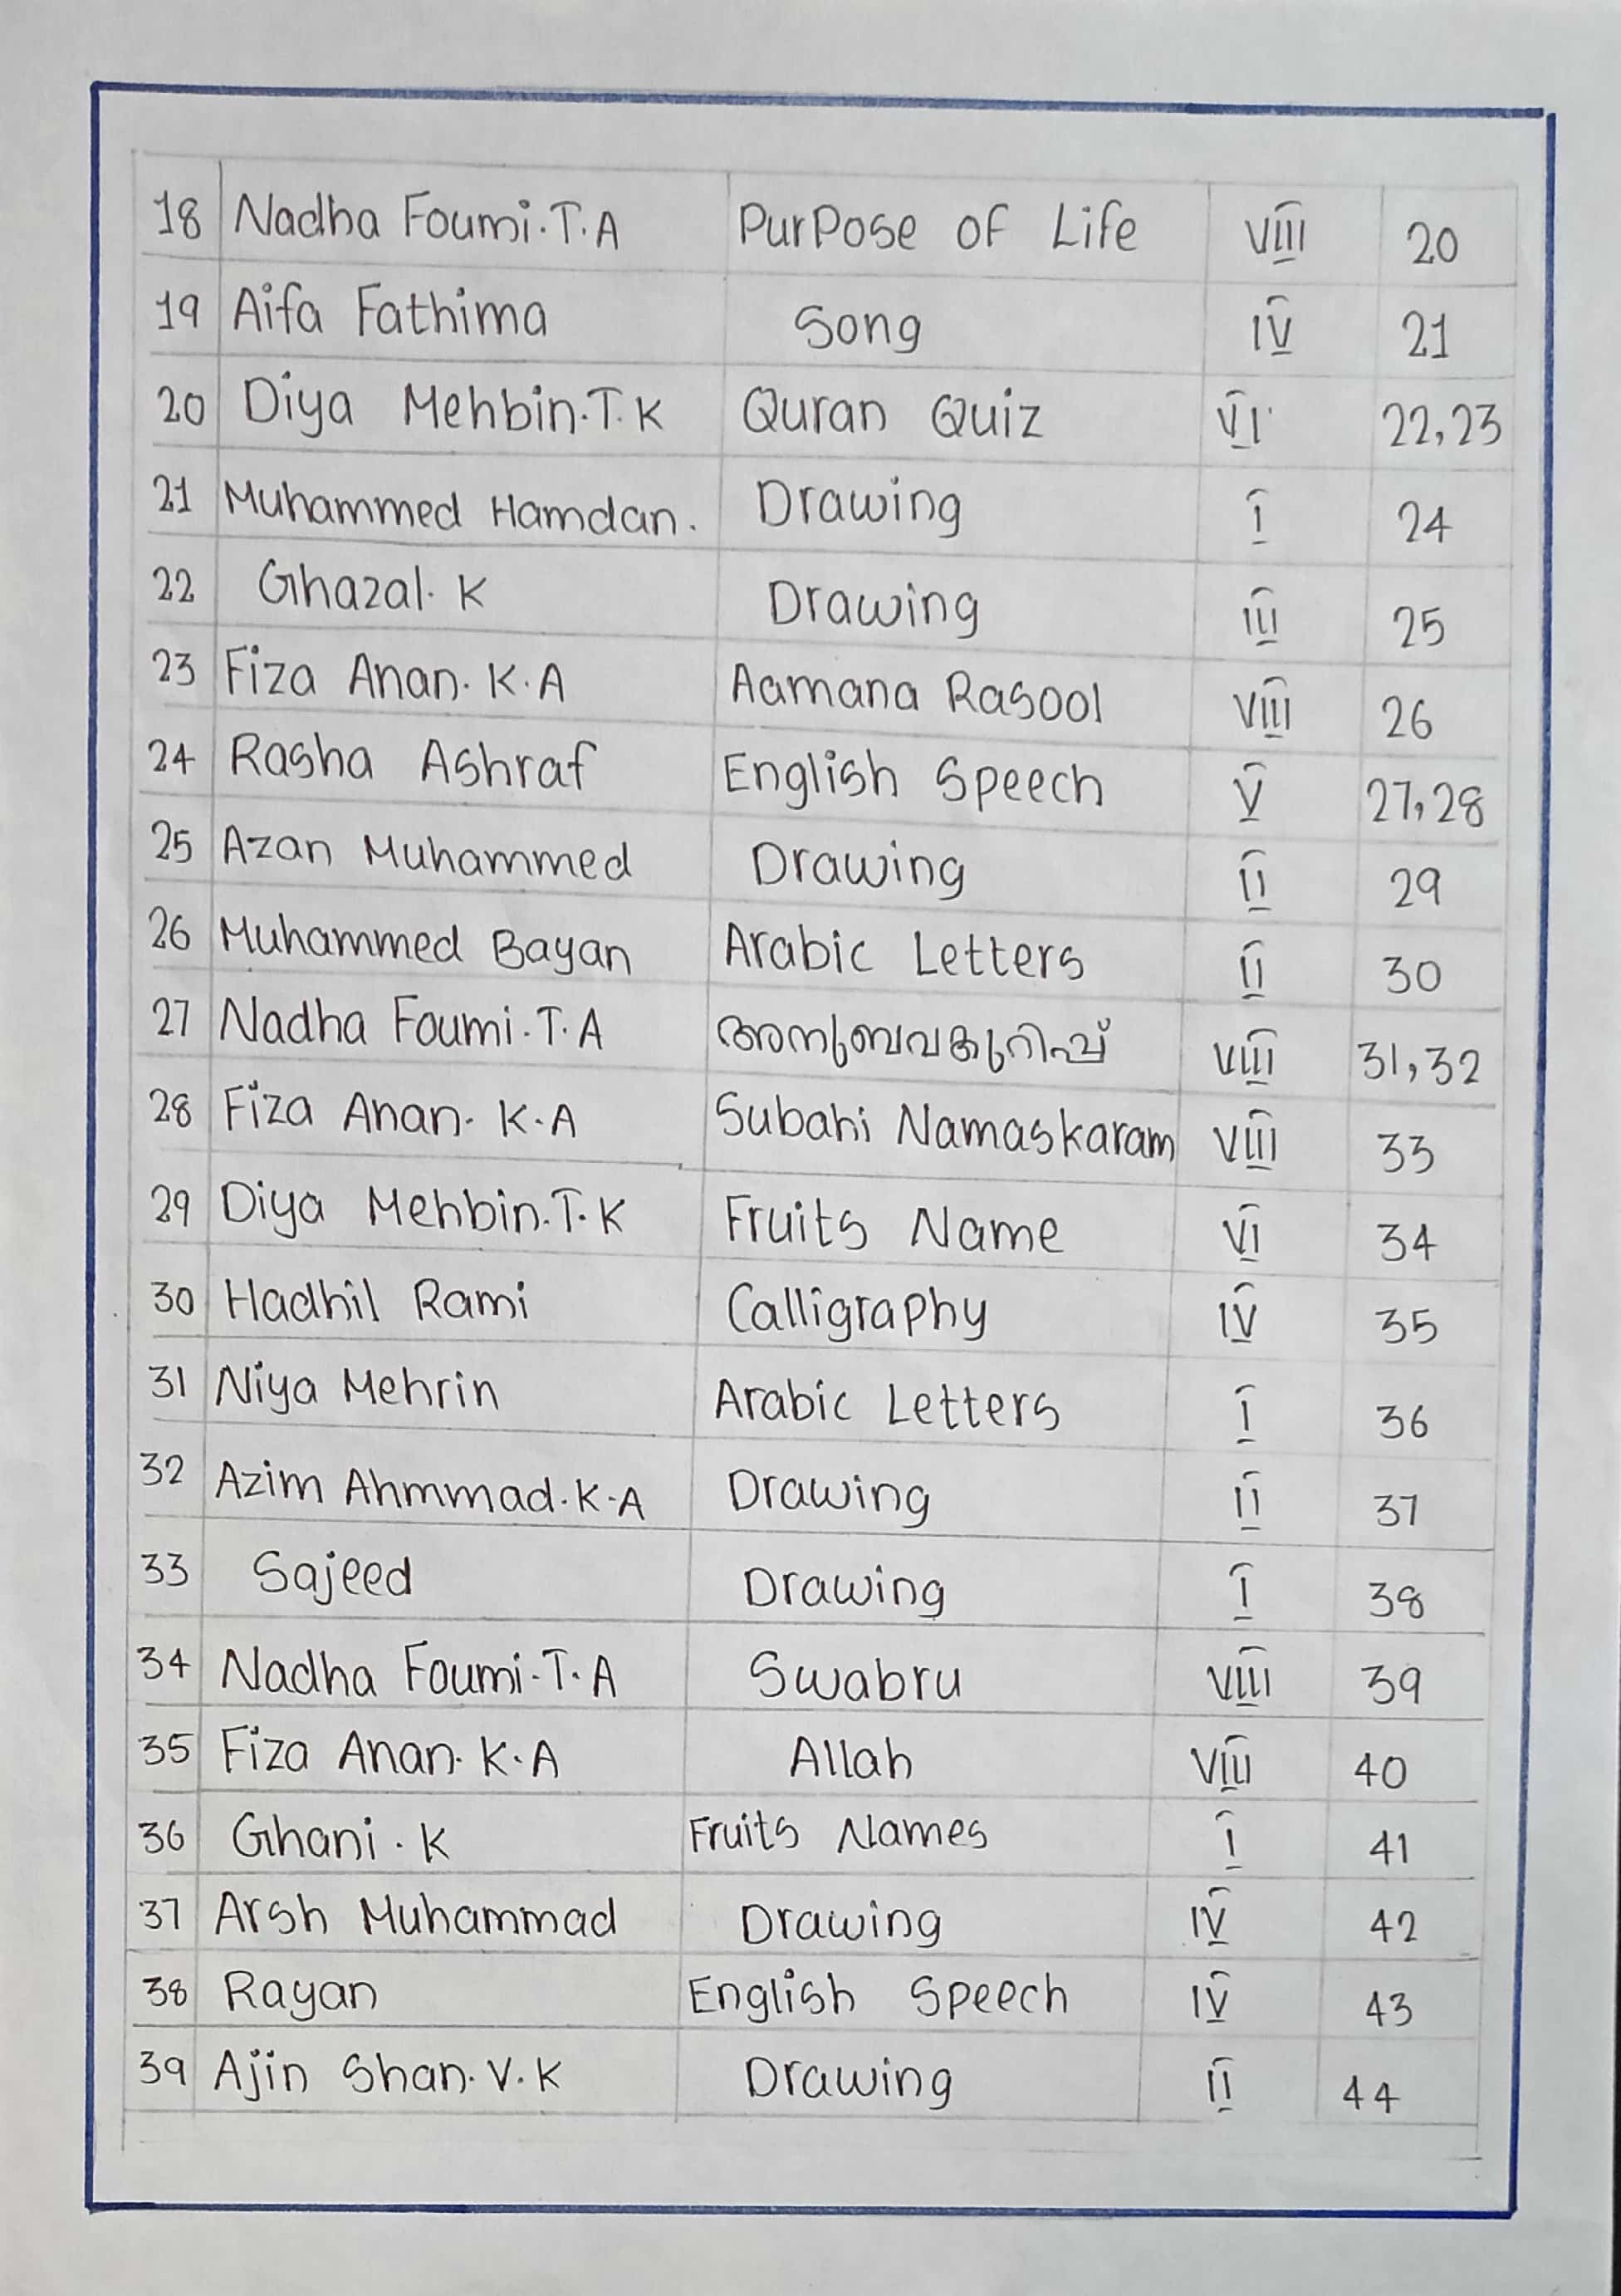 18 Nadha Foumi.T.A PurPose of Life VIII 20
19 Aifa Fathima Song IV 21
20 Diya Mehbin.T.K Quran Quiz VI 22,23
21 Muhammed Hamdan. Drawing I 24
22 Ghazal.K Drawing III 25
23 Fiza Anan.K.A Aamana Rasool VIII 26
24 Rasha Ashraf English Speech V 27,28
25 Azan Muhammed Drawing II 29
26 Muhammed Bayan Arabic Letters II 30
27 Nadha Foumi.T.A അനുബവകുറിപ്പ് VIII 31,32
28 Fiza Anan.K.A Subahi Namaskaram VIII 33
29 Diya Mehbin.T.K Fruits Name VI 34
30 Hadhil Rami Calligraphy IV 35
31 Niya Mehrin Arabic Letters I 36
32 Azim Ahmmad.K.A Drawing II 37
33 Sajeed Drawing I 38
34 Nadha Foumi.T.A Swabru VIII 39
35 Fiza Anan.K.A Allah VIII 40
36 Ghani.K Fruits Names I 41
37 Arsh Muhammad Drawing IV 42
38 Rayan English Speech IV 43
39 Ajin Shan.V.K Drawing II 44